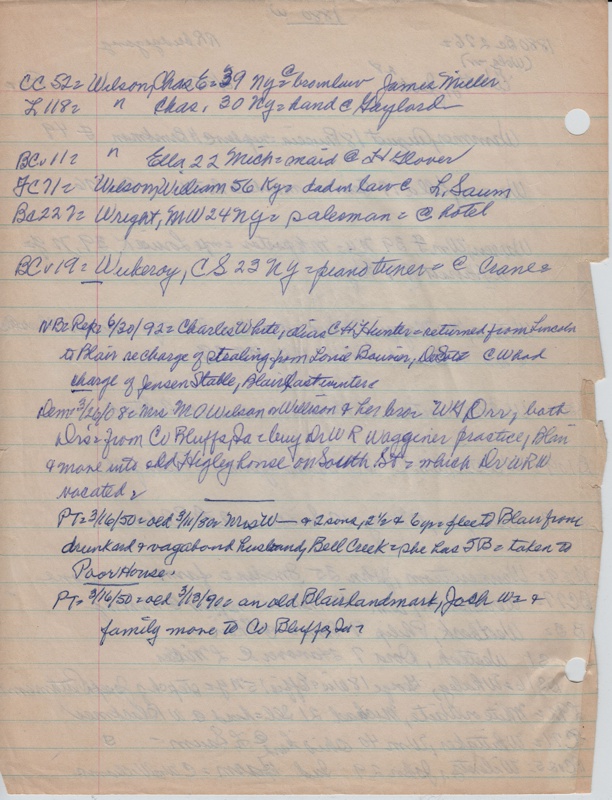 CC 52= Wilson, Chas E= 39 Ny= @ bro inlaw James Miller
L 118= " Chas, 30 Ny= hand @ Gaylord
BCv11= " Ella 22 Mich= maid @ H Glover
FC71= Wilson, William 56 Ky= dad in law @ L. Saum
Bs227= Wright, MW 24 Ny= salesman = @ hotel
BCv19= C S 23 NY= piano tuner= @ Crane=
NB= Rep= 6/30/92= Charles White, alias C H Hunter= returned from Lincoln
to Blair re charge of stealing from Louie C W had
charge of Jensen Stable, Blair last winter=
Dem= 3/26/08= Mrs M O Wilson or Willison & her bro= W H Orr, both
Drs= from Co Bluffs, Ia= buy Dr W R Wagginer practice, Blair
& move into old Higley house on South St= which Dr W R W
vacated=
PT= 3/16/50= old 3/11/80= Mrs W— & 2 sons, 2½ & 6 yr= flee to Blair from
drunkard & vagabond husband, Bell Creek= she has TB= taken to
Poor House.
PT= 3/16/50= old 3/13/90= an old Blair landmark, Josh W= &
family move to Co Bluffs, Ia=